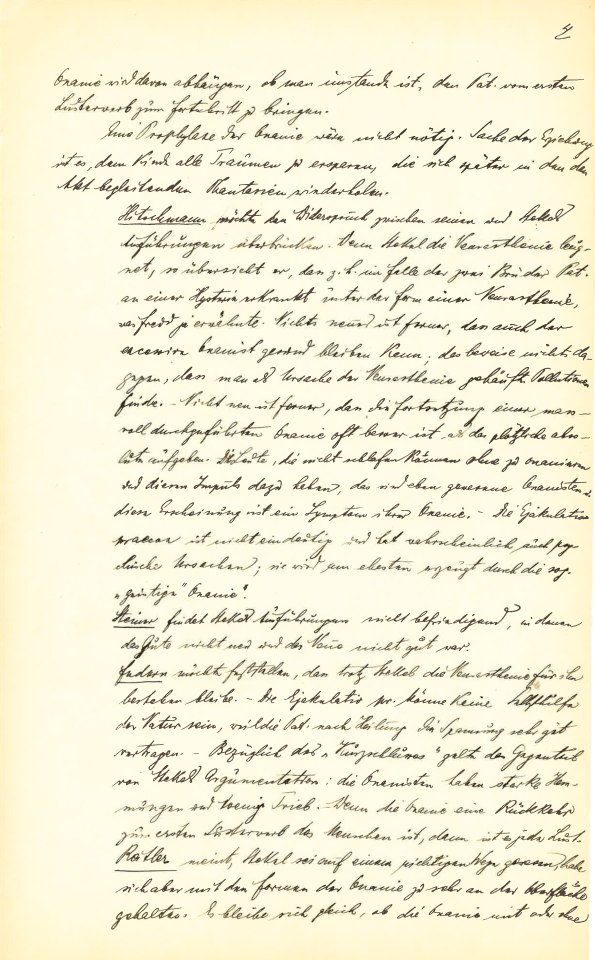 4
Onanie wird davon abhängen, ob man imstande ist, den Pat. vom ersten
Lusterwerb zum Fortschritt zu bringen.
Eine Prophylaxe der Onanie wäre nicht nötig. Sache der Erziehung
ist es, dem Kinde alle Traumen zu ersparen, die sich später in den den
Akt begleitenden Phantasien wiederholen.
Hitschmann möchte den Widerspruch zwischen seinen und Stekels
Ausführungen überbrücken. Wenn Stekel die Neurasthenie leug-
net, so übersieht er, dass z. B. im Falle der zwei Brüder Pat.
an einer Hysterie erkrankt unter der Form einer Neurasthenie,
was Freud ja erwähnte. Nichts neues ist ferner, dass auch der
excessive Onanist gesund bleiben kann; das beweise nichts da-
gegen, dass man als Ursache der Neurasthenie gehäufte Pollutionen
finde. – Nicht neu ist ferner, dass die Fortsetzung einer mass-
voll durchgeführten Onanie oft besser ist als das plötzliche abso-
lute aufgeben. Die Leute, die nicht schlafen können ohne zu onanieren
und diesen Impuls dazu haben, das sind eben gewesene Onanisten u.
diese Erscheinung ist ein Symptom ihrer Onanie. – Die Ejakulatio
praecox ist nicht eindeutig und hat wahrscheinlich auch psy-
chische Ursachen; sie wird am ehesten erzeugt durch die sog.
„geistige" Onanie".
Steiner findet Stekels Ausführungen nicht befriedigend, in denen
das Gute nicht neu und das Neue nicht gut war.
Federn möchte feststellen, dass trotz Stekel die Neurasthenie für ihn
bestehen bleibe. – Die Ejakulatio pr. könne keine Selbsthilfe
der Natur sein, weil die Pat. nach Heilung die Spannung sehr gut
vertragen. – Bezüglich des „Kurzschlusses" gelte das Gegenteil
von Stekels Argumentation: die Onanisten haben starke Hem-
mungen und wenig Trieb. – Wenn die Onanie eine Rückkehr
zum ersten Lusterwerb des Menschen ist, dann ist es jede Lust.
Reitler meint, Stekel sei auf einem richtigen Wege gewesen, habe
sich aber mit den Formen der Onanie zu sehr an der Oberfläche
gehalten. Es bleibe sich gleich, ob die Onanie mit oder ohne